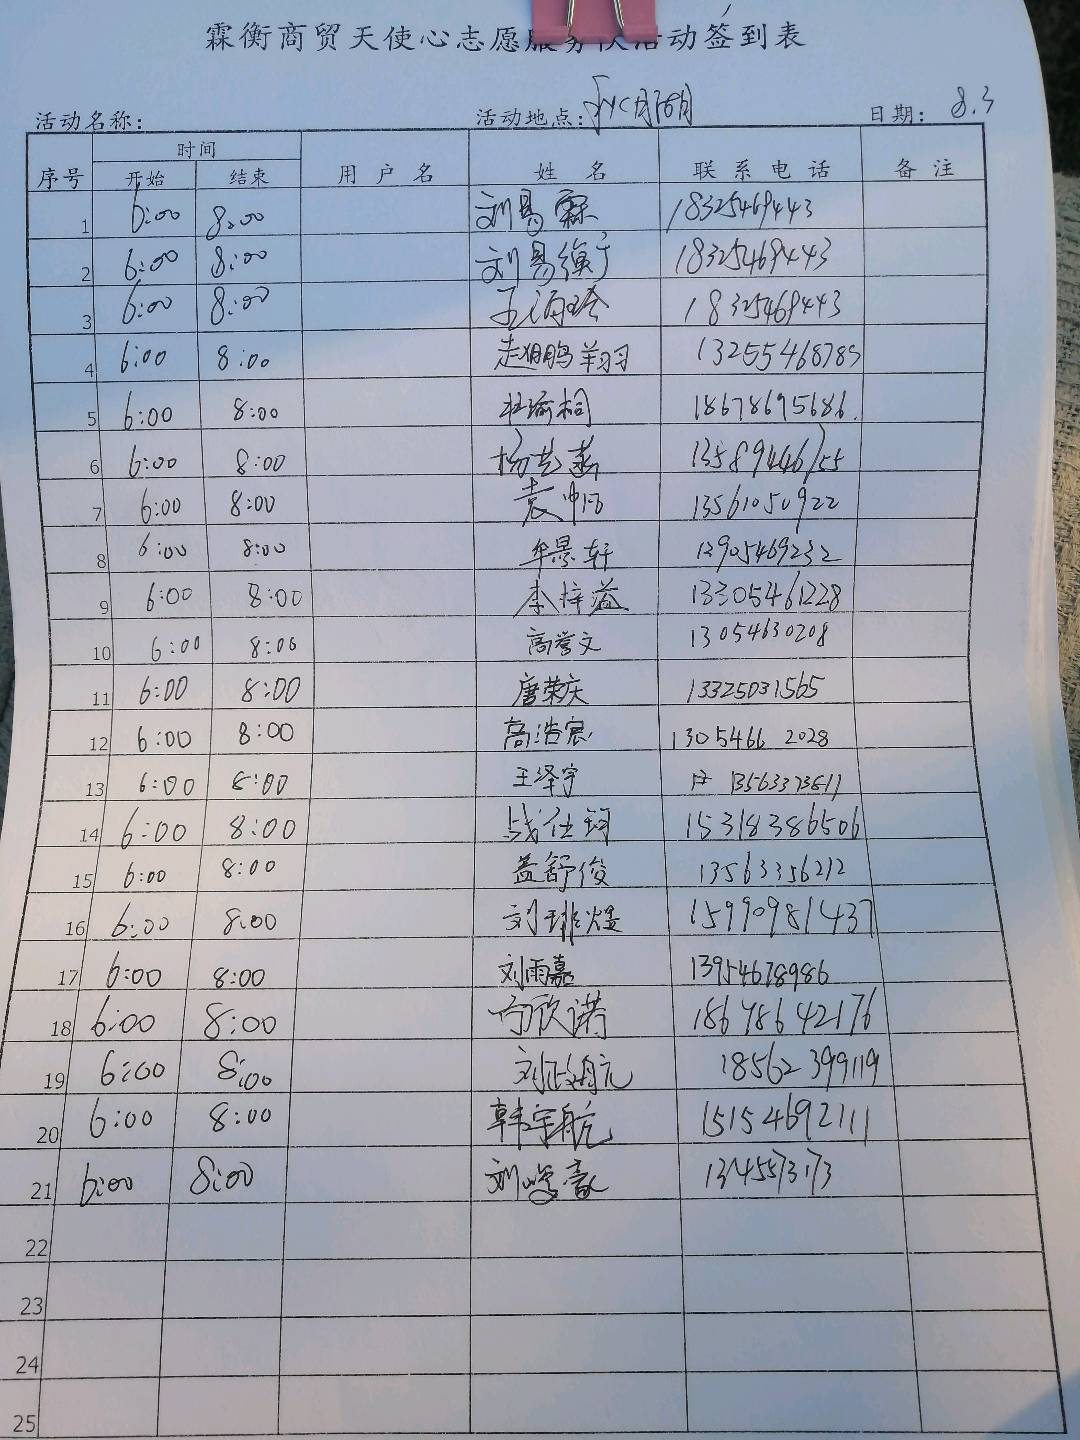 霖衡商贸天使心志愿服务队活动签到表
活动名称: 活动地点: 日期: 8.3
序号 时间 用户名 姓名 联系电话 备注
开始 结束
1 6:00 8:00 刘易霖 18325469443
2 6:00 8:00 刘易 18325469443
3 6:00 8:00 18325469443
4 6:00 8:00 赵鹏翔 13255468785
5 6:00 8:00 杜瑜桐 18678695686
6 6:00 8:00 杨 13589446155
7 6:00 8:00 袁 13561050922
8 6:00 8:00 牟景轩 13905469232
9 6:00 8:00 李梓溢 13305461228
10 6:00 8:00 高誉文 13054630208
11 6:00 8:00 唐荣庆 13325031565
12 6:00 8:00 高浩宸 1305466 2028
13 6:00 8:00 王泽宇 13563373811
14 6:00 8:00 15318386506
15 6:00 8:00 盖舒俊 13563356212
16 6:00 8:00 刘 15990981437
17 6:00 8:00 刘雨嘉 13954678986
18 6:00 8:00 欣诺 18678642176
19 6:00 8:00 刘 18562399119
20 6:00 8:00 韩宇航 15154692111
21 6:00 8:00 刘峻豪
22
23
24
25